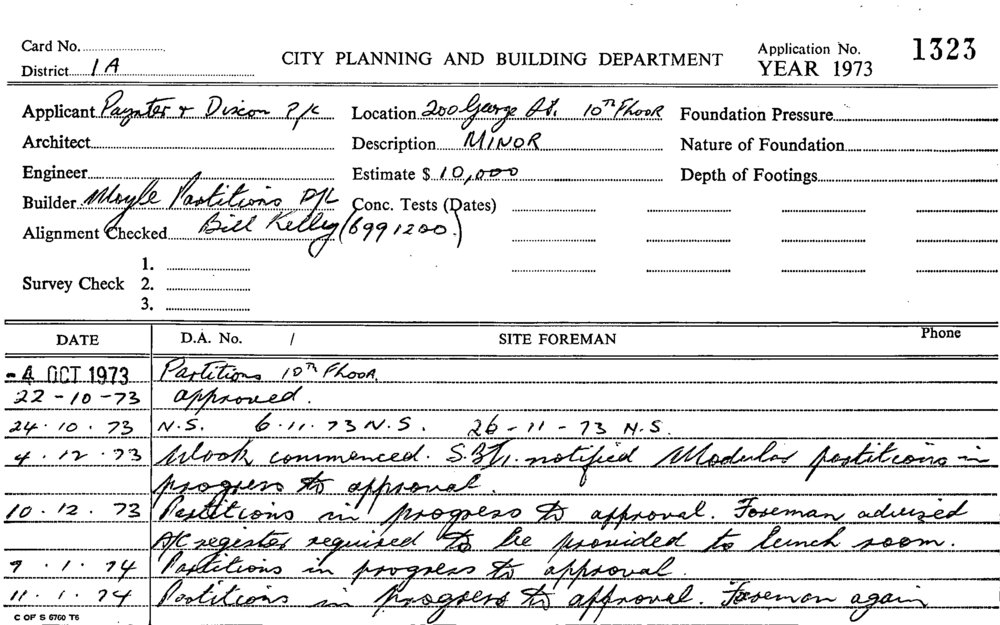 Card No.
District 1A
CITY PLANNING AND BUILDING DEPARTMENT
Application No. 1323
YEAR 1973
Applicant Paynter & Dixon P/L Location 200 George St. 10TH Floor Foundation Pressure
Architect Description MINOR Nature of Foundation
Engineer Estimate $ 10,000 Depth of Footings
Builder Moyle Partitions P/L Conc. Tests (Dates)
Alignment Checked Bill Kelly (6991200.)
1.
Survey Check 2.
3.
DATE D.A. No. / SITE FOREMAN Phone
-4 OCT 1973 Partitions 10TH Floor.
22-10-73 approved.
24.10.73 N.S. 6.11.73 N.S. 26-11-73 N.S.
4.12.73 Work commenced. notified Modular partitions in
progress to approval.
10.12.73 Partitions in progress to approval. Foreman advised
A/C register required to be provided to lunch room.
9.1.74 Partitions in progress to approval.
11.1.74 Partitions in progress to approval. Foreman again
C OF S 6760 T6